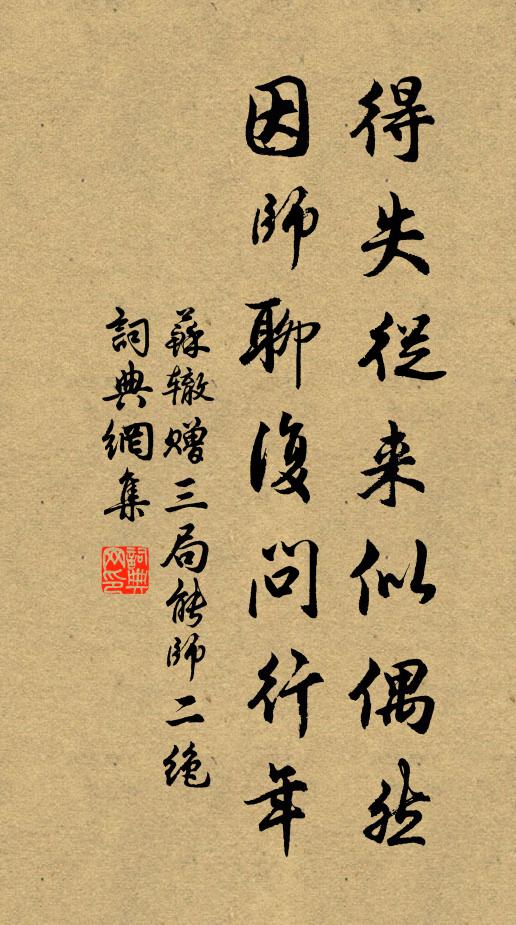 得失從来似偶然
因師聊復問行年
蘇辙赠三局能師二绝
詞典網集
詞典网印